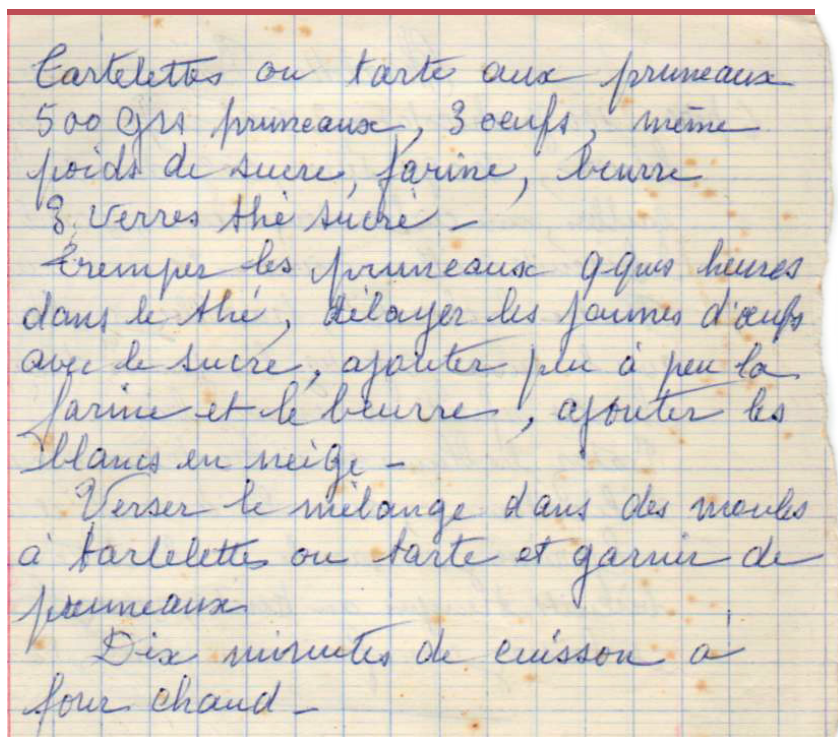 Tartelettes ou tarte aux pruneaux
500 grs pruneaux, 3 oeufs, même
poids de sucre, farine, beurre
3 verres thé sucré -
tremper les pruneaux qques heures
dans le thé, délayer les jaunes d'œufs
avec le sucre, ajouter peu à peu la
farine et le beurre, ajouter les
blancs en neige -
Verser le mélange dans des moules
à tartelettes ou tarte et garnir de
pruneaux
Dix minutes de cuisson à
four chaud -